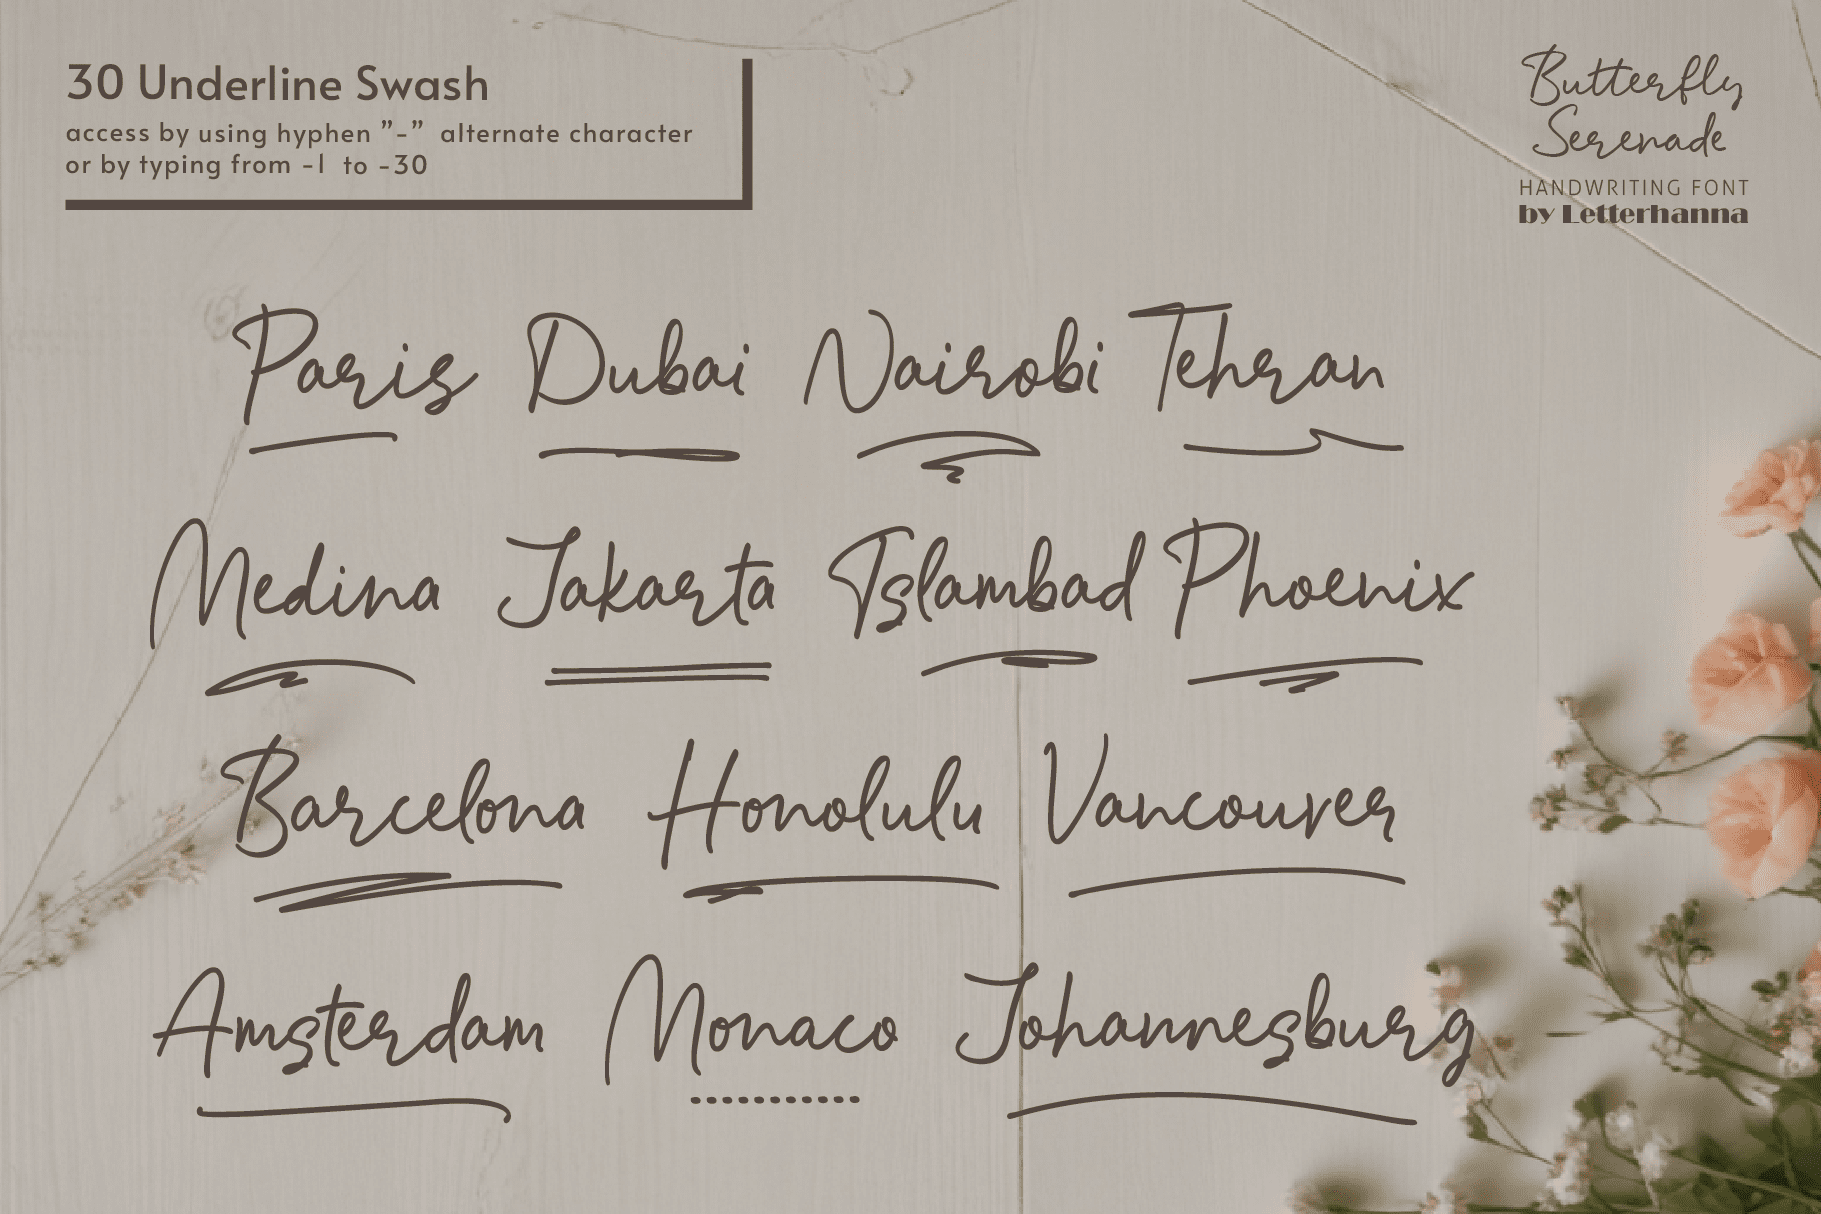 30 Underline Swash
access by using hyphen ”-” alternate character
or by typing from -1 to -30
Butterfly
Serenade
HANDWRITING FONT
by Letterhanna
Paris Dubai Nairobi Tehran
Medina Jakarta Islambad Phoenix
Barcelona Honolulu Vancouver
Amsterdam Monaco Johannesburg